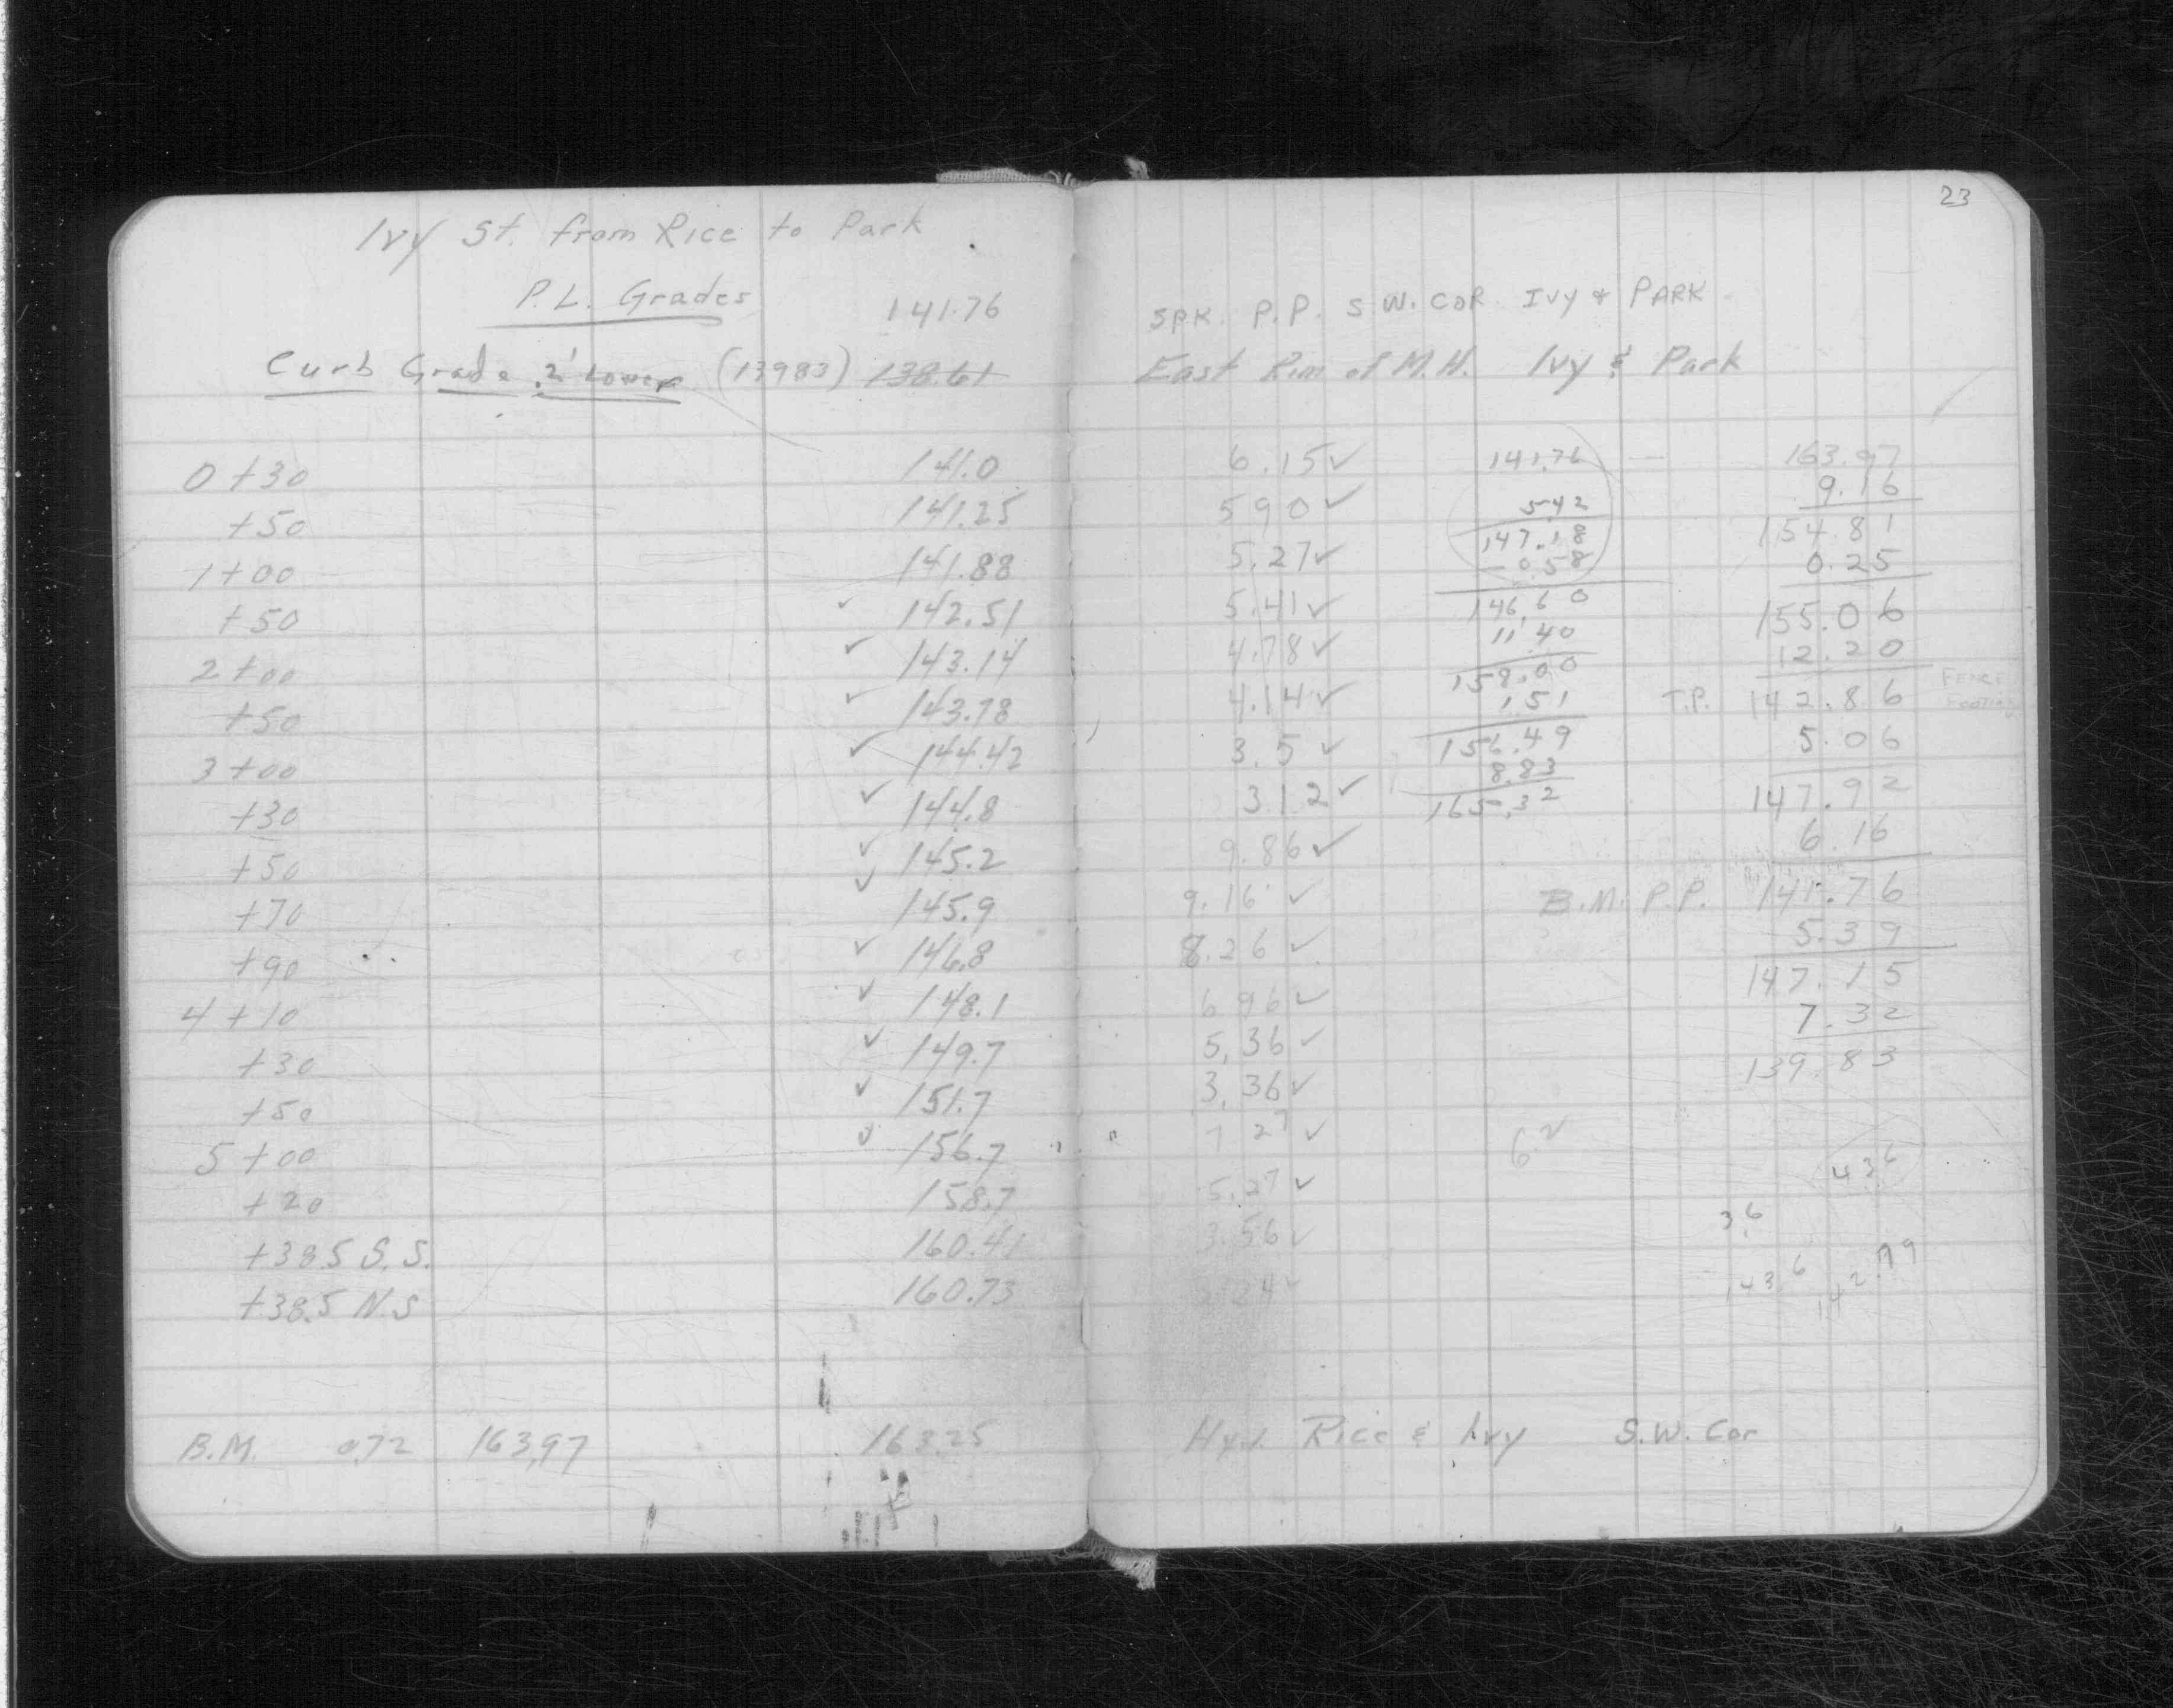 23
Ivy St. from Rice to Park
P.L. Grades 141.76 SPK. P.P. S.W. COR. IVY & PARK
Curb Grade .2' Lower (13983) 138.61 East Rim of M.H. Ivy & Park
0+30 141.0 6.15✓ 141.76 163.97
+50 141.25 5 90✓ 5.42 9.16
1+00 141.88 5.27✓ 147.18 154.81
0.58 0.25
+50 ✓ 142.51 5.41✓ 146.60 155.06
2+00 ✓ 143.14 4.78✓ 11.40 12.20
+50 ✓ 143.78 4.14✓ 158.00 T.P. 142.86 FENCE FOOTING
1.51
3+00 ✓ 144.42 3.5✓ 156.49 5.06
8.83
+30 ✓ 144.8 3.12✓ 165.32 147.92
+50 ✓ 145.2 9.86✓ 6.16
+70 ✓ 145.9 9.16✓ B.M. P.P. 141.76
+90 ✓ 146.8 8.26✓ 5.39
4+10 ✓ 148.1 6 96✓ 147.15
+30 ✓ 149.7 5.36✓ 7.32
+50 ✓ 151.7 3.36✓ 139.83
5+00 ✓ 156.7 7 27✓ 6.2
+20 158.7 5.27✓ 43.6
+38.5 S.S. 160.41 3.56✓ 3.6
+38.5 N.S 160.73 143.6
B.M. 0.72 163.97 163.25 Hyd. Rice & Ivy S.W. Cor